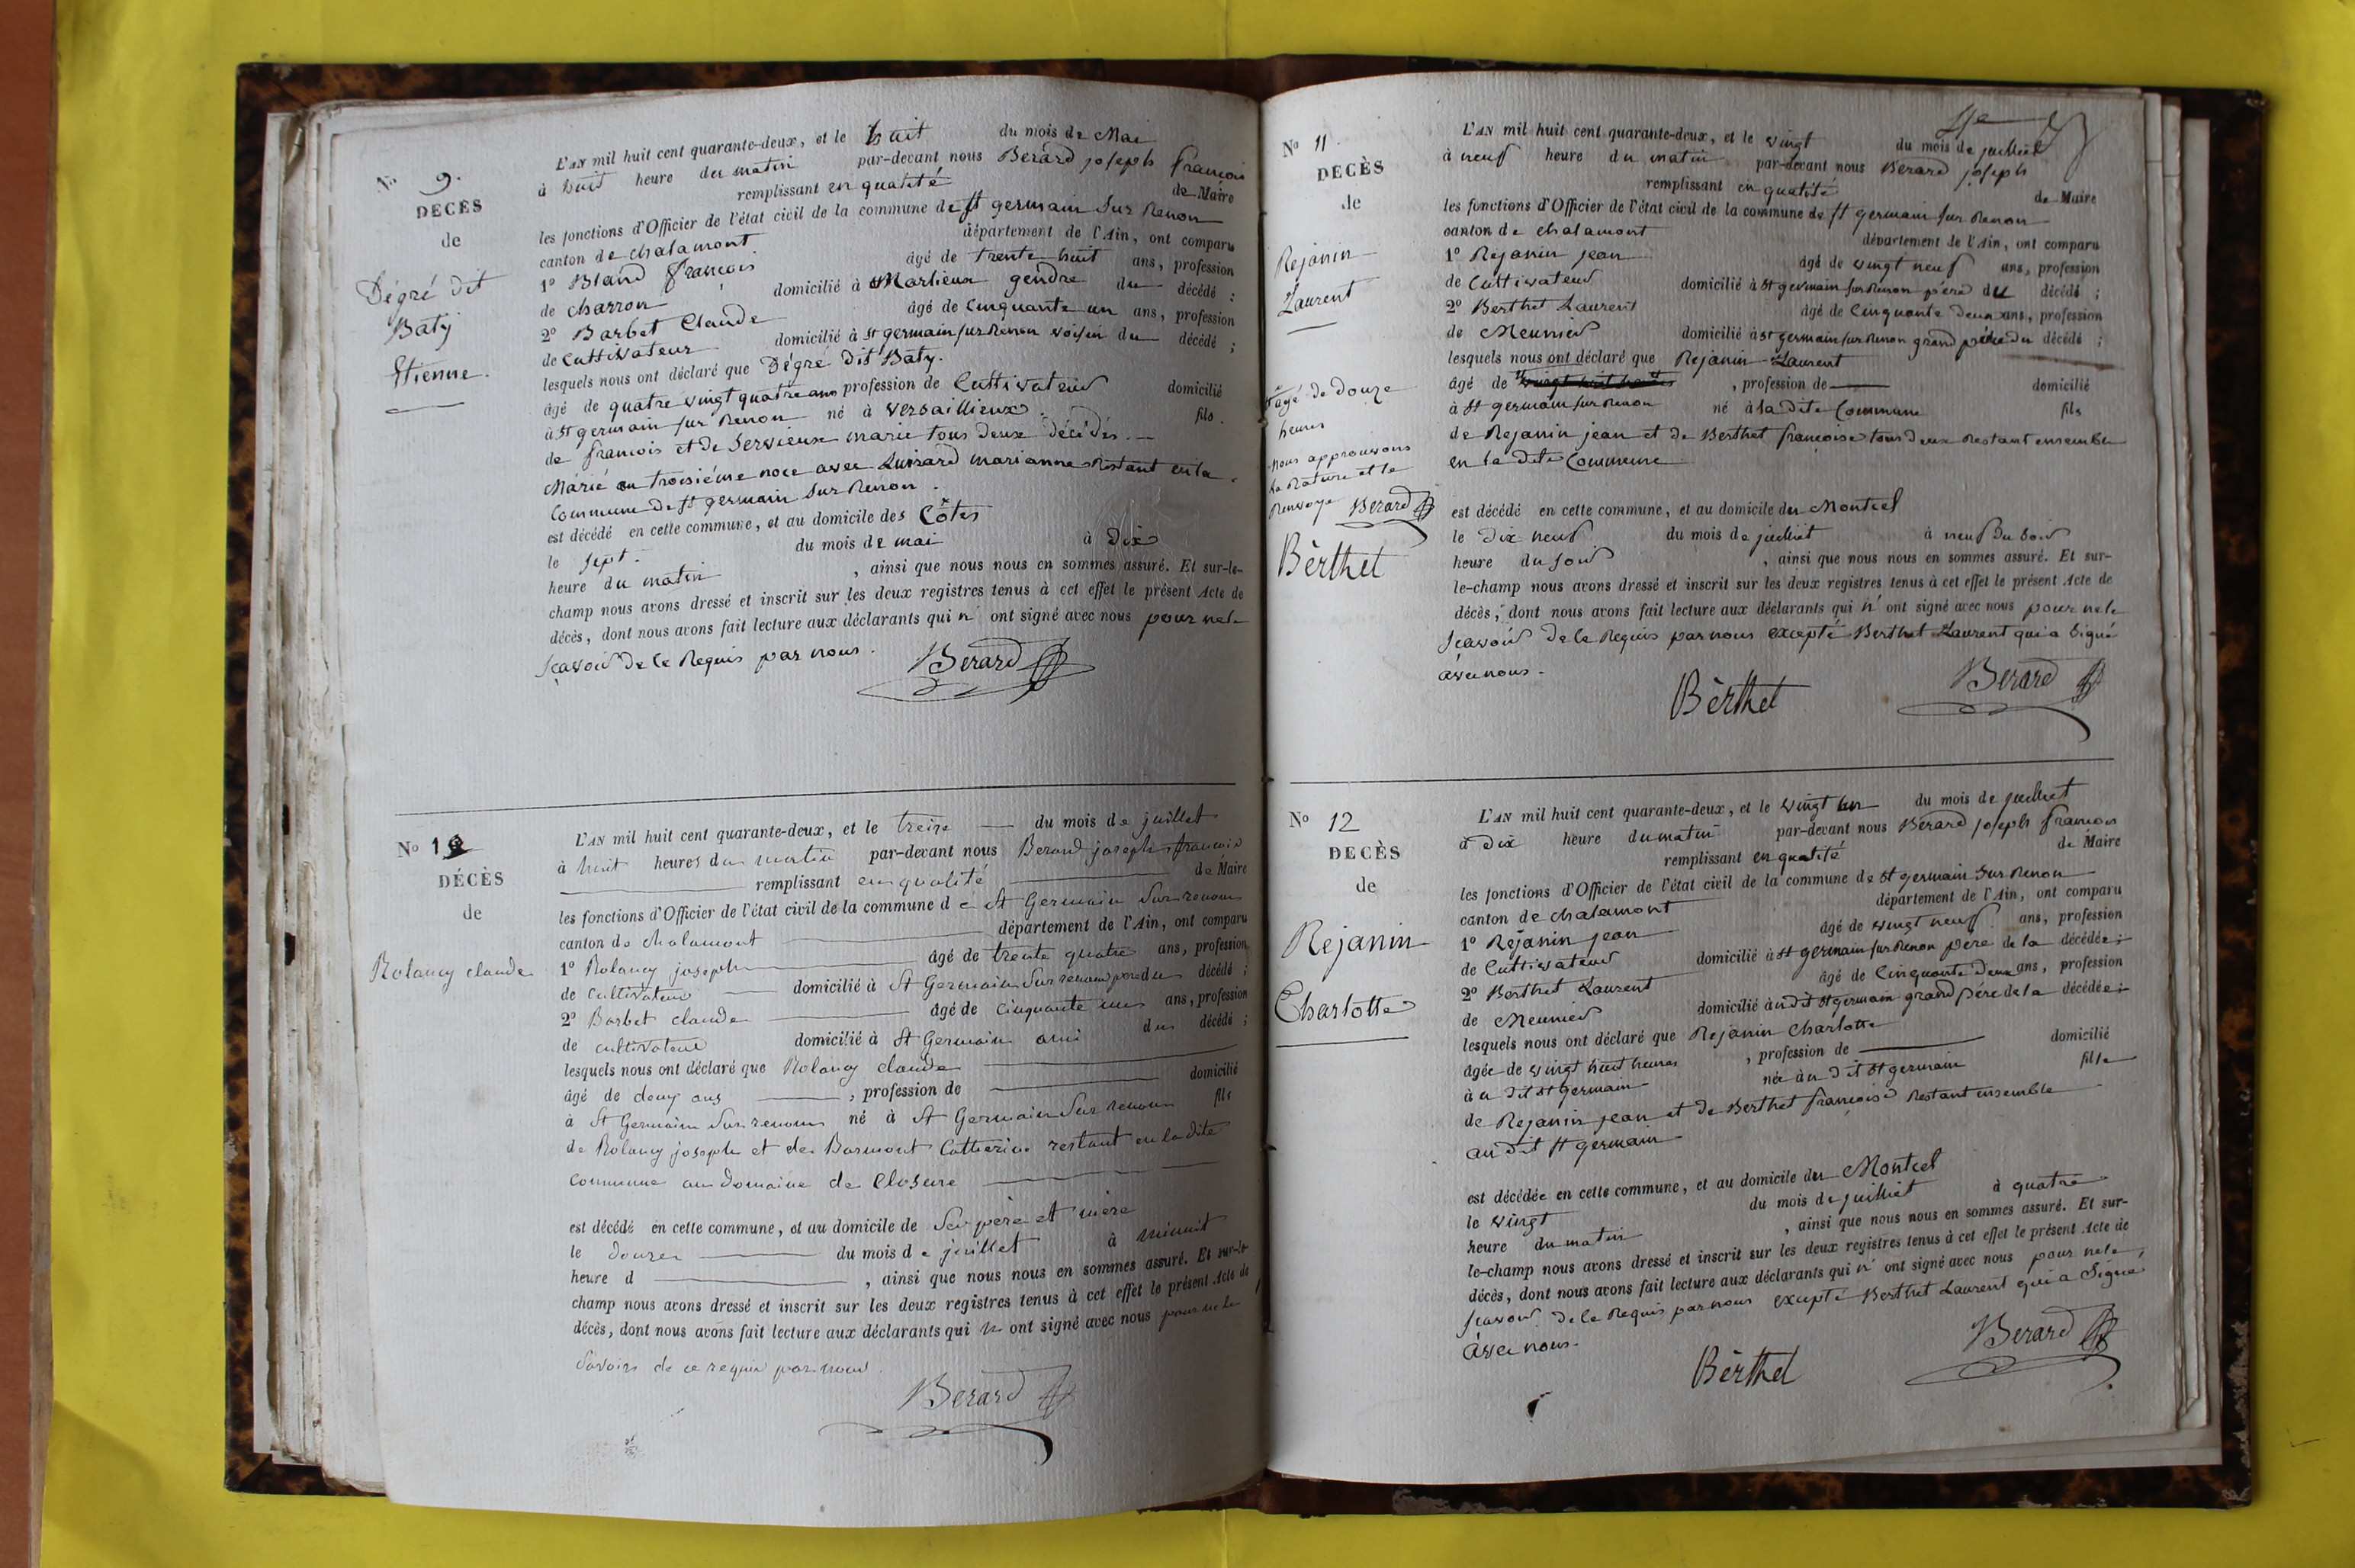 No 9.
DÉCÈS
de
Dégré dit
Baty
Etienne.
L'AN mil huit cent quarante-deux, et le huit du mois de Mai
à huit heure du matin par-devant nous Berard joseph françois
remplissant en qualité de Maire
les fonctions d'Officier de l'état civil de la commune de st germain sur Renon
canton de chalamont département de l'Ain, ont comparu
1º Bland françois âgé de trente huit ans, profession
de charron domicilié à Marlieux gendre du décédé ;
2º Barbet Claude âgé de Cinquante un ans, profession
de Cultivateur domicilié à st germain sur Renon voisin du décédé ;
lesquels nous ont déclaré que Dégré dit Baty.
âgé de quatre vingt quatre ans profession de Cultivateur domicilié
à st germain sur Renon né à Versaillieux. fils.
de françois et de Servieux marie tous deux décédés.
Marié en troisiéme noce avec Luisard marianne Restant en la
Commune de st germain sur Renon.
est décédé en cette commune, et au domicile des Côtes
le sept. du mois de mai à Dix
heure du matin , ainsi que nous nous en sommes assuré. Et sur-le-
champ nous avons dressé et inscrit sur les deux registres tenus à cet effet le présent Acte de
décès, dont nous avons fait lecture aux déclarants qui n' ont signé avec nous pour ne le
sçavoir de ce Requis par nous.
Berard
No 10
DÉCÈS
de
Rolancy claude
L'AN mil huit cent quarante-deux, et le treize du mois de juillet
à huit heures du matin par-devant nous Berard joseph francois
remplissant en qualité de Maire
les fonctions d'Officier de l'état civil de la commune de St Germain Sur renom
canton de chalamont département de l'Ain, ont comparu
1º Rolancy joseph âgé de trente quatre ans, profession
de cultivateur domicilié à St Germain Sur renom pere du décédé ;
2º Barbet claude âgé de cinquante un ans, profession
de cultivateur domicilié à St Germain ami du décédé ;
lesquels nous ont déclaré que Rolancy claude
âgé de deux ans , profession de domicilié
à St Germain Sur renom né à St Germain Sur renom fils
de Rolancy joseph et de Barmont Catherine restant en la dite
Commune au domaine de Closure
est décédé en cette commune, et au domicile de Ses père et mère
le douze du mois de juillet à minuit
heure d , ainsi que nous nous en sommes assuré. Et sur-le
champ nous avons dressé et inscrit sur les deux registres tenus à cet effet le présent Acte de
décès, dont nous avons fait lecture aux déclarants qui n ont signé avec nous pour ne le
Savoir de ce requis par nous.
Berard
No 11.
DÉCÈS
de
Rejanin
Laurent
âgé de Douze
heures
nous approuvons
la Rature et le
Renvoye Berard
Bèrthet
L'AN mil huit cent quarante-deux, et le vingt du mois de juilliet
à neuf heure du matin par-devant nous Berard joseph
remplissant en qualité de Maire
les fonctions d'Officier de l'état civil de la commune de st germain sur Renon
canton de chalamont département de l'Ain, ont comparu
1º Rejanin jean âgé de vingt neuf ans, profession
de Cultivateur domicilié à st germain sur Renon pére du décédé ;
2º Berthet Laurent âgé de Cinquante Deux ans, profession
de Meunier domicilié à st germain sur Renon grand pére du décédé ;
lesquels nous ont déclaré que Rejanin Laurent
âgé de vingt huit heures , profession de domicilié
à st germain sur Renon né à la dite Commune fils
de Rejanin jean et de Berthet françoise tous deux Restant ensemble
en la dite Commune
est décédé en cette commune, et au domicile du Monteel
le Dix neuf du mois de juilliet à neuf du Soir
heure du soir , ainsi que nous nous en sommes assuré. Et sur-
le-champ nous avons dressé et inscrit sur les deux registres tenus à cet effet le présent Acte de
décès, dont nous avons fait lecture aux déclarants qui n' ont signé avec nous pour ne le
sçavoir de ce Requis par nous excepté Berthet Laurent qui a Signé
avec nous.
Bèrthet Berard
No 12
DÉCÈS
de
Rejanin
Charlotte
L'AN mil huit cent quarante-deux, et le vingt un du mois de juilliet
à Dix heure du matin par-devant nous Berard joseph françois
remplissant en qualité de Maire
les fonctions d'Officier de l'état civil de la commune de st germain sur Renon
canton de chalamont département de l'Ain, ont comparu
1º Rejanin jean âgé de vingt neuf ans, profession
de Cultivateur domicilié à st germain sur Renon pére de la décédée ;
2º Berthet Laurent âgé de Cinquante Deux ans, profession
de Meunier domicilié àudit st germain grand pére de la décédée ;
lesquels nous ont déclaré que Rejanin Charlotte
âgée de vingt huit heures , profession de domicilié
à u dit st germain née àu dit st germain fille
de Rejanin jean et de Berthet françoise Restant ensemble
au dit st germain
est décédée en cette commune, et au domicile du Monteel
le vingt du mois de juilliet à quatre
heure du matin , ainsi que nous nous en sommes assuré. Et sur-
le-champ nous avons dressé et inscrit sur les deux registres tenus à cet effet le présent Acte de
décès, dont nous avons fait lecture aux déclarants qui n' ont signé avec nous pour ne le
sçavoir de ce Requis par nous excepté Berthet Laurent qui a Signé
àvec nous.
Bèrthet Berard